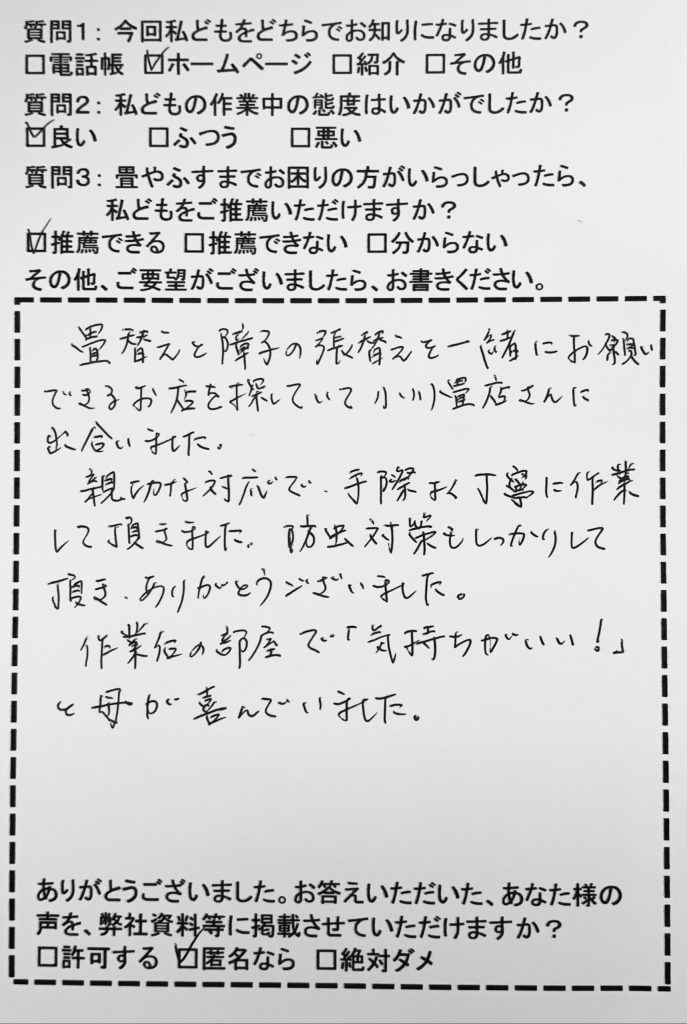 質問1：今回私どもをどちらでお知りになりましたか？
□電話帳 ☑ホームページ □紹介 □その他
質問2：私どもの作業中の態度はいかがでしたか？
☑良い □ふつう □悪い
質問3：畳やふすまでお困りの方がいらっしゃったら、
私どもをご推薦いただけますか？
☑推薦できる □推薦できない □分からない
その他、ご要望がございましたら、お書きください。
畳替えと障子の張替えを一緒にお願い
できるお店を探していて小川畳店さんに
出合いました。
親切な対応で、手際よく丁寧に作業
して頂きました。防虫対策もしっかりして
頂き、ありがとうございました。
作業後の部屋で「気持ちがいい！」
と母が喜んでいました。
ありがとうございました。お答えいただいた、あなた様の
声を、弊社資料等に掲載させていただけますか？
□許可する ☑匿名なら □絶対ダメ